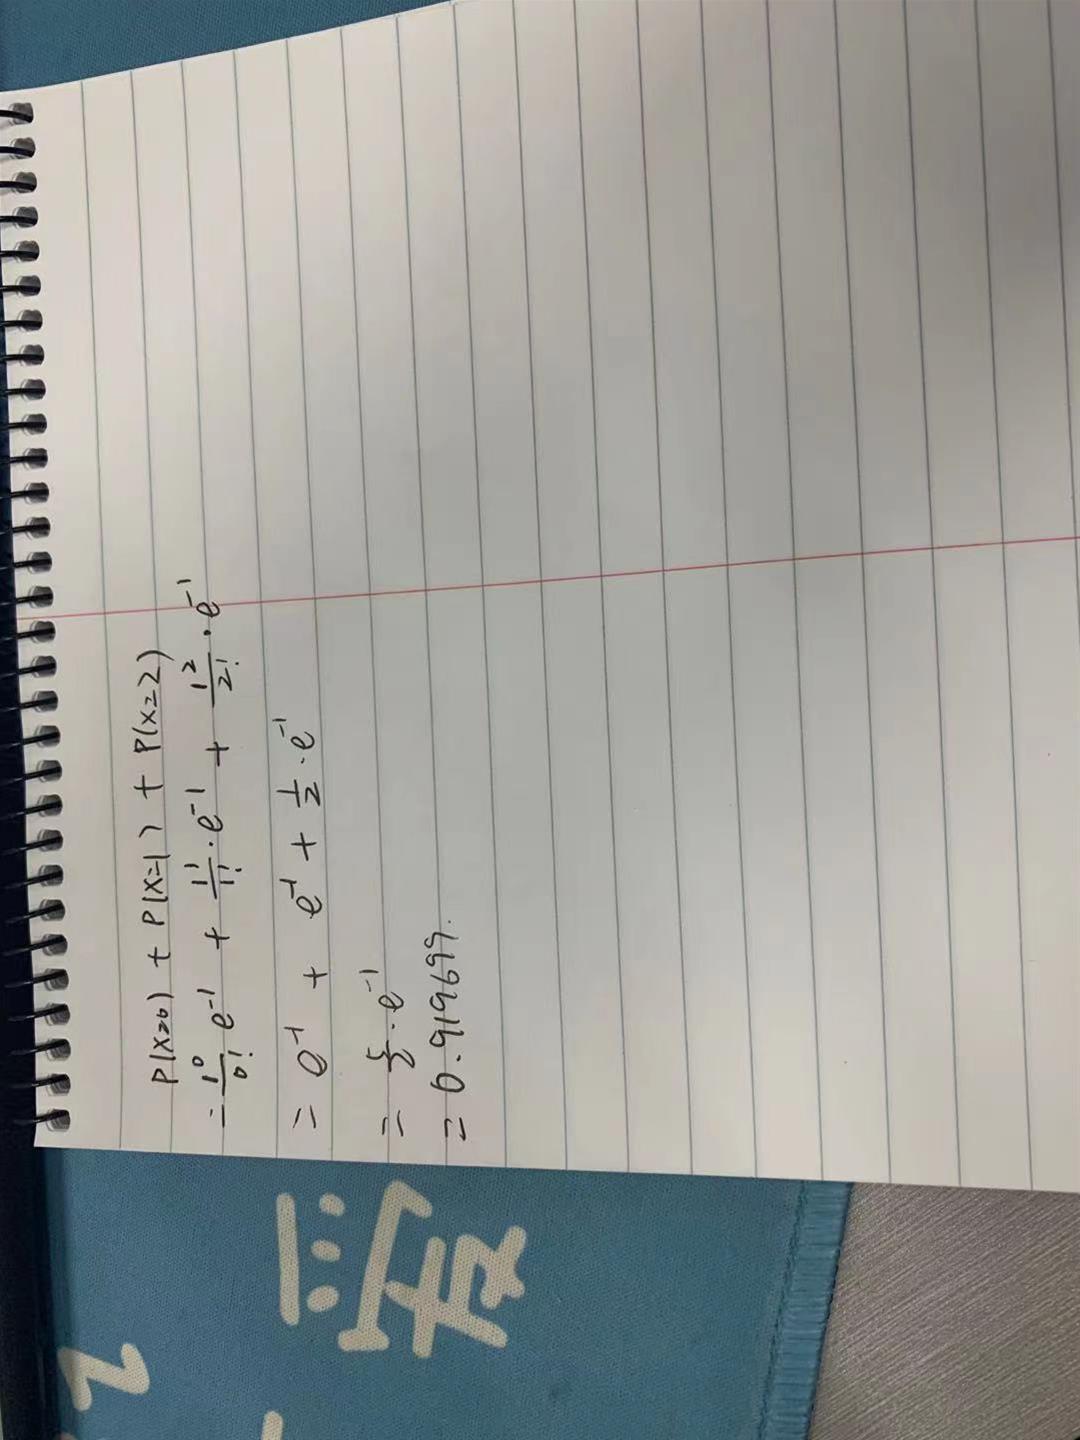 P(X=0) + P(X=1) + P(X=2)
= 1^0/0! e^-1 + 1^1/1! · e^-1 + 1^2/2! · e^-1
= e^-1 + e^-1 + 1/2 · e^-1
= 5/2 · e^-1
= 0.919699.
爱